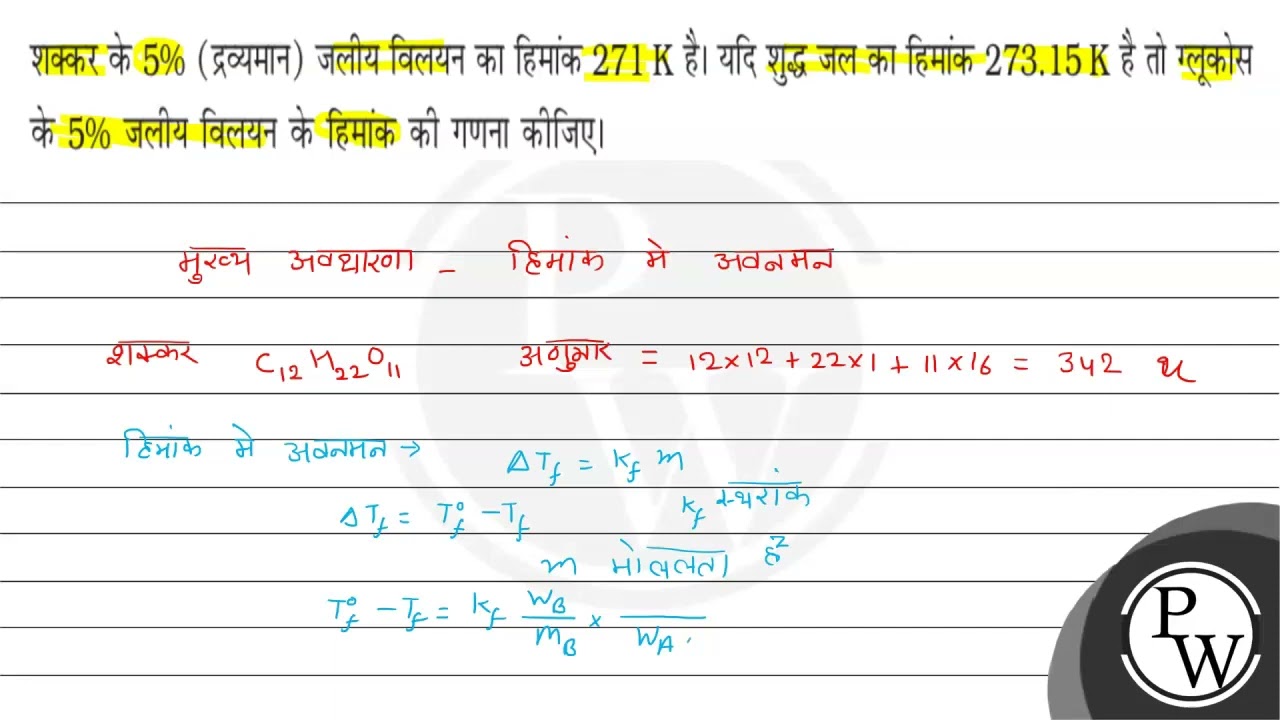 शक्कर के 5% (द्रव्यमान) जलीय विलयन का हिमांक 271 K है। यदि शुद्ध जल का हिमांक 273.15 K है तो ग्लूकोस
के 5% जलीय विलयन के हिमांक की गणना कीजिए।
मुख्य अवधारणा - हिमांक मे अवनमन
शक्कर C₁₂H₂₂O₁₁ अणुभार = 12×12 + 22×1 + 11×16 = 342 u
हिमांक मे अवनमन → ΔT_f = K_f m
K_f स्थरांक
ΔT_f = T_f° - T_f
m मोललता है
T_f° - T_f = K_f W_B/m_B × /W_A
PW
PW